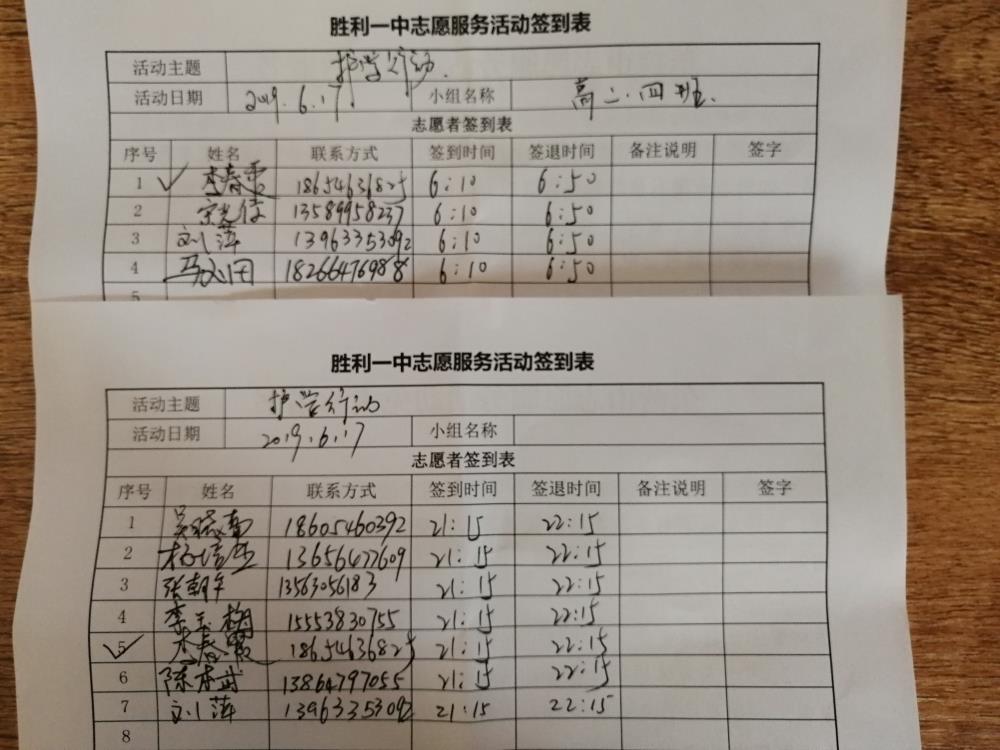 胜利一中志愿服务活动签到表
活动主题 护学行动.
活动日期 2019.6.17 小组名称 高二.四班.
志愿者签到表
序号 姓名 联系方式 签到时间 签退时间 备注说明 签字
1 李春霞 18654636825 6:10 6:50
2 13589958237 6:10 6:50
3 刘萍 13963353092 6:10 6:50
4 18266476988 6:10 6:50
5
胜利一中志愿服务活动签到表
活动主题 护学行动
活动日期 2019.6.17 小组名称
志愿者签到表
序号 姓名 联系方式 签到时间 签退时间 备注说明 签字
1 18605460392 21:15 22:15
2 13656477609 21:15 22:15
3 张朝午 13563056183 21:15 22:15
4 李玉梅 15553830755 21:15 22:15
5 李春霞 18654636825 21:15 22:15
6 陈本武 13864797055 21:15 22:15
7 刘萍 13963353092 21:15 22:15
8